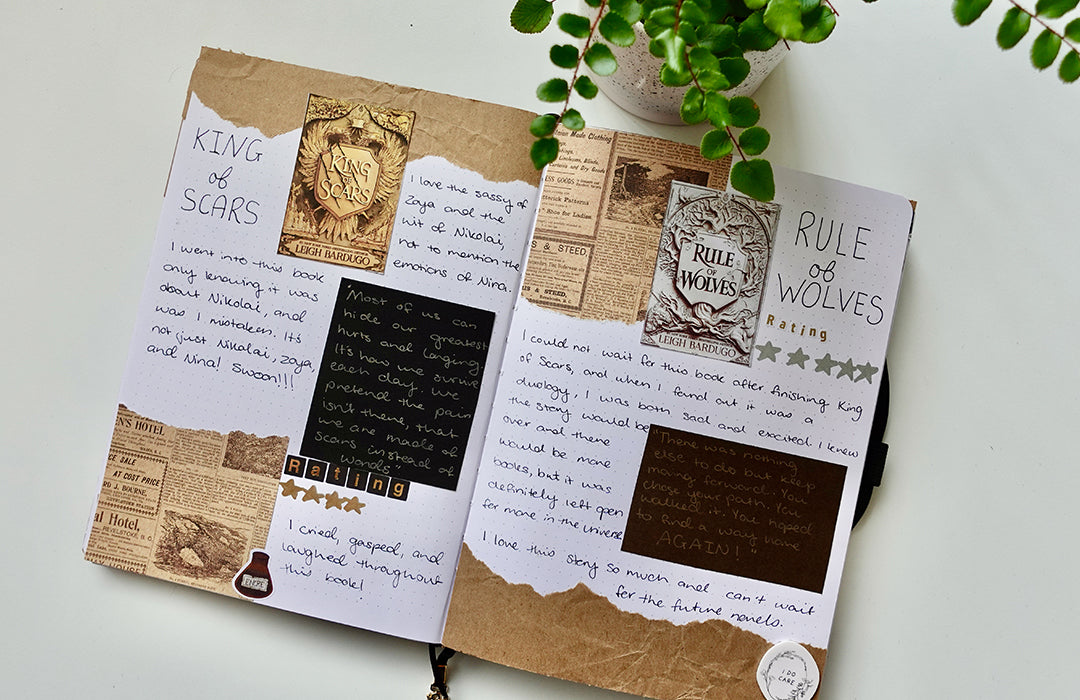 KING
of
SCARS
KING
OF
SCARS
LEIGH BARDUGO
I love the sassy of
Zoya and the
wit of Nikolai,
not to mention the
emotions of Nina.
I went into this book
only knowing it was
about Nikolai, and
was I mistaken. It's
not just Nikolai, Zoya,
and Nina! Swoon!!!
"Most of us can
hide our greatest
hurts and longing.
It's how we survive
each day. We
pretend the pain
isn't there, that
we are made of
scars instead of
wounds"
Rating
I cried, gasped, and
laughed throughout
this book!
EN'S HOTEL
RE SALE
AT COST PRICE
RD J. BOURNE,
al Hotel.
REVELSTOKE, B. C.
ENCRE
Made Clothing
ESS GOODS
Butterick Patterns
S & STEED,
RULE
OF
WOLVES
LEIGH BARDUGO
RULE
of
WOLVES
Rating
I could not wait for this book after finishing King
of Scars, and when I found out it was a
duology, I was both sad and excited. I knew
the story would be
over and there
would be more
books, but it was
definitely left open
for more in the universe
"There was nothing
else to do but keep
moving forward. You
chose your path. You
walked it. You hoped
to find a way home
AGAIN!"
I love this story so much and can't wait
for the future novels.
I DO
CARE